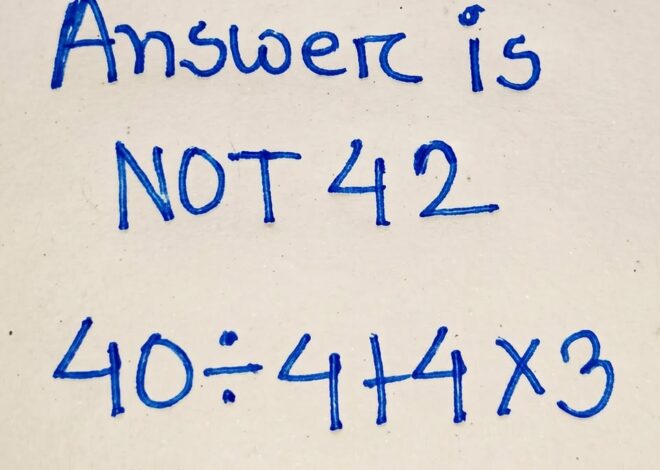 Answer is
NOT 42
40÷4+4×3